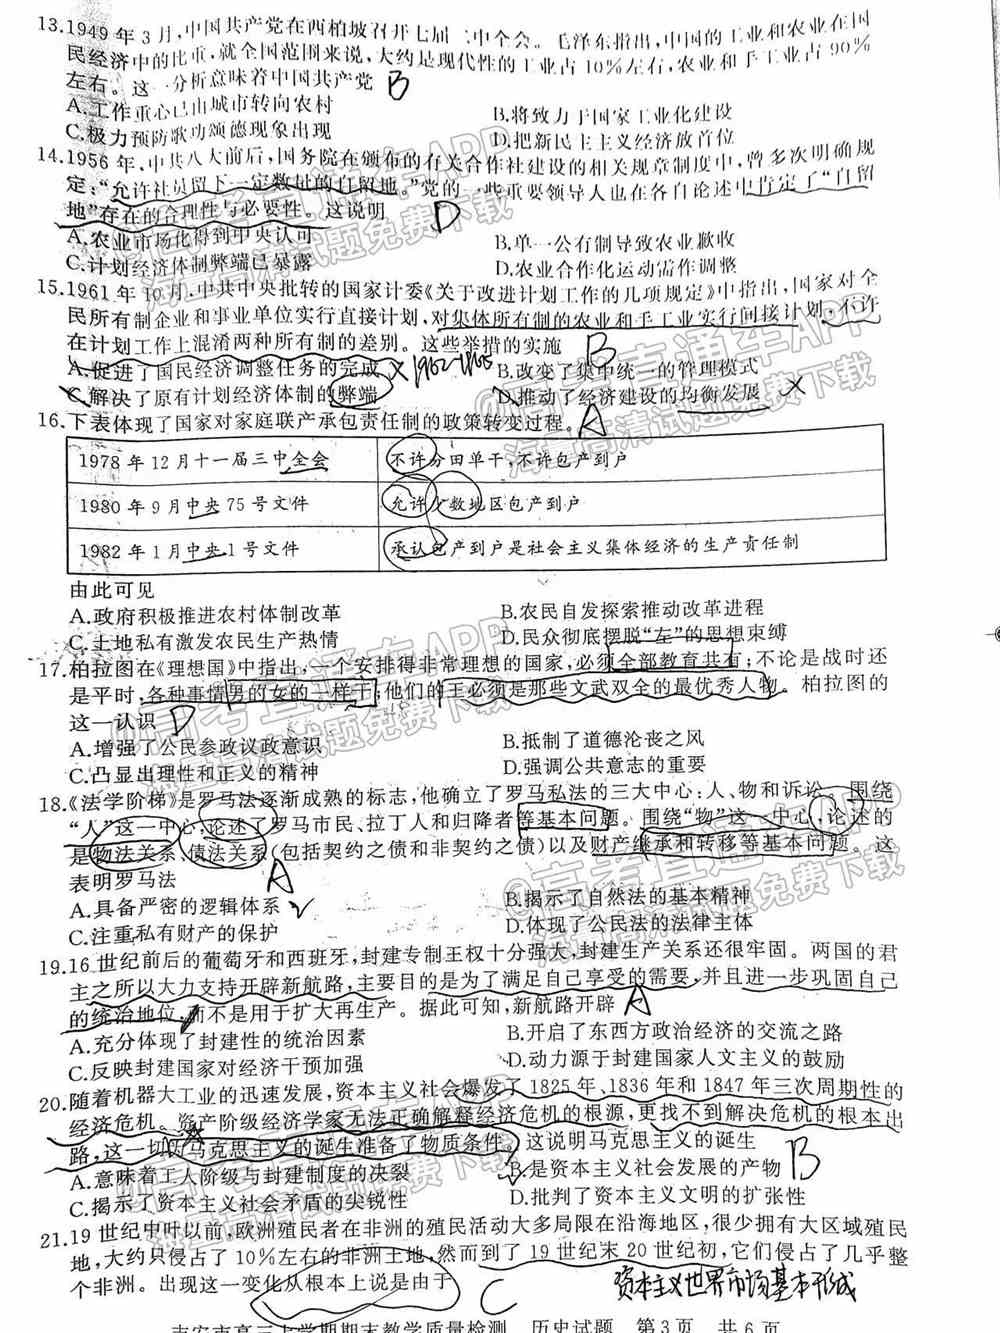 13.1949年3月,中国共产党在西柏坡召开七届二中全会。毛泽东指出,中国的工业和农业在国
民经济中的比重,就全国范围来说,大约是现代性的工业占10%左右,农业和手工业占90%
左右。这一分析意味着中国共产党 B
A.工作重心已由城市转向农村 B.将致力于国家工业化建设
C.极力预防歌功颂德现象出现 D.把新民主主义经济放首位
14.1956年,中共八大前后,国务院在颁布的有关合作社建设的相关规章制度中,曾多次明确规
定:“允许社员留下一定数量的自留地。”党的一些重要领导人也在各自论述中肯定了“自留
地”存在的合理性与必要性。这说明 D
A.农业市场化得到中央认可 B.单一公有制导致农业歉收
C.计划经济体制弊端已暴露 D.农业合作化运动需作调整
15.1961年10月,中共中央批转的国家计委《关于改进计划工作的几项规定》中指出,国家对全
民所有制企业和事业单位实行直接计划,对集体所有制的农业和手工业实行间接计划,不许
在计划工作上混淆两种所有制的差别。这些举措的实施 B
A.促进了国民经济调整任务的完成 X 1962-1965 B.改变了集中统一的管理模式
C.解决了原有计划经济体制的弊端 D.推动了经济建设的均衡发展 X
16.下表体现了国家对家庭联产承包责任制的政策转变过程。 A
1978年12月十一届三中全会 不许分田单干,不许包产到户
1980年9月中央75号文件 允许少数地区包产到户
1982年1月中央1号文件 承认包产到户是社会主义集体经济的生产责任制
由此可见
A.政府积极推进农村体制改革 B.农民自发探索推动改革进程
C.土地私有激发农民生产热情 D.民众彻底摆脱“左”的思想束缚
17.柏拉图在《理想国》中指出,一个安排得非常理想的国家,必须全部教育共有;不论是战时还
是平时,各种事情男的女的一样干;他们的王必须是那些文武双全的最优秀人物。柏拉图的
这一认识 D
A.增强了公民参政议政意识 B.抵制了道德沦丧之风
C.凸显出理性和正义的精神 D.强调公共意志的重要
18.《法学阶梯》是罗马法逐渐成熟的标志,他确立了罗马私法的三大中心:人、物和诉讼。围绕
“人”这一中心,论述了罗马市民、拉丁人和归降者等基本问题。围绕“物”这一中心,论述的
是物法关系、债法关系(包括契约之债和非契约之债)以及财产继承和转移等基本问题。这
表明罗马法 A
A.具备严密的逻辑体系 √ B.揭示了自然法的基本精神
C.注重私有财产的保护 D.体现了公民法的法律主体
19.16世纪前后的葡萄牙和西班牙,封建专制王权十分强大,封建生产关系还很牢固。两国的君
主之所以大力支持开辟新航路,主要目的是为了满足自己享受的需要,并且进一步巩固自己
的统治地位,而不是用于扩大再生产。据此可知,新航路开辟 A
A.充分体现了封建性的统治因素 B.开启了东西方政治经济的交流之路
C.反映封建国家对经济干预加强 D.动力源于封建国家人文主义的鼓励
20.随着机器大工业的迅速发展,资本主义社会爆发了1825年、1836年和1847年三次周期性的
经济危机。资产阶级经济学家无法正确解释经济危机的根源,更找不到解决危机的根本出
路,这一切为马克思主义的诞生准备了物质条件。这说明马克思主义的诞生
A.意味着工人阶级与封建制度的决裂 B.是资本主义社会发展的产物 B
C.揭示了资本主义社会矛盾的尖锐性 D.批判了资本主义文明的扩张性
21.19世纪中叶以前,欧洲殖民者在非洲的殖民活动大多局限在沿海地区,很少拥有大区域殖民
地,大约只侵占了10%左右的非洲土地,然而到了19世纪末20世纪初,它们侵占了几乎整
个非洲。出现这一变化从根本上说是由于 C 资本主义世界市场基本形成
吉安市高三上学期期末教学质量检测 历史试题 第3页 共6页
@高考直通车APP
海量高清试题免费下载
@高考直通车APP
海量高清试题免费下载
@高考直通车APP
海量高清试题免费下载
@高考直通车APP
海量高清试题免费下载
@高考直通车APP
海量高清试题免费下载